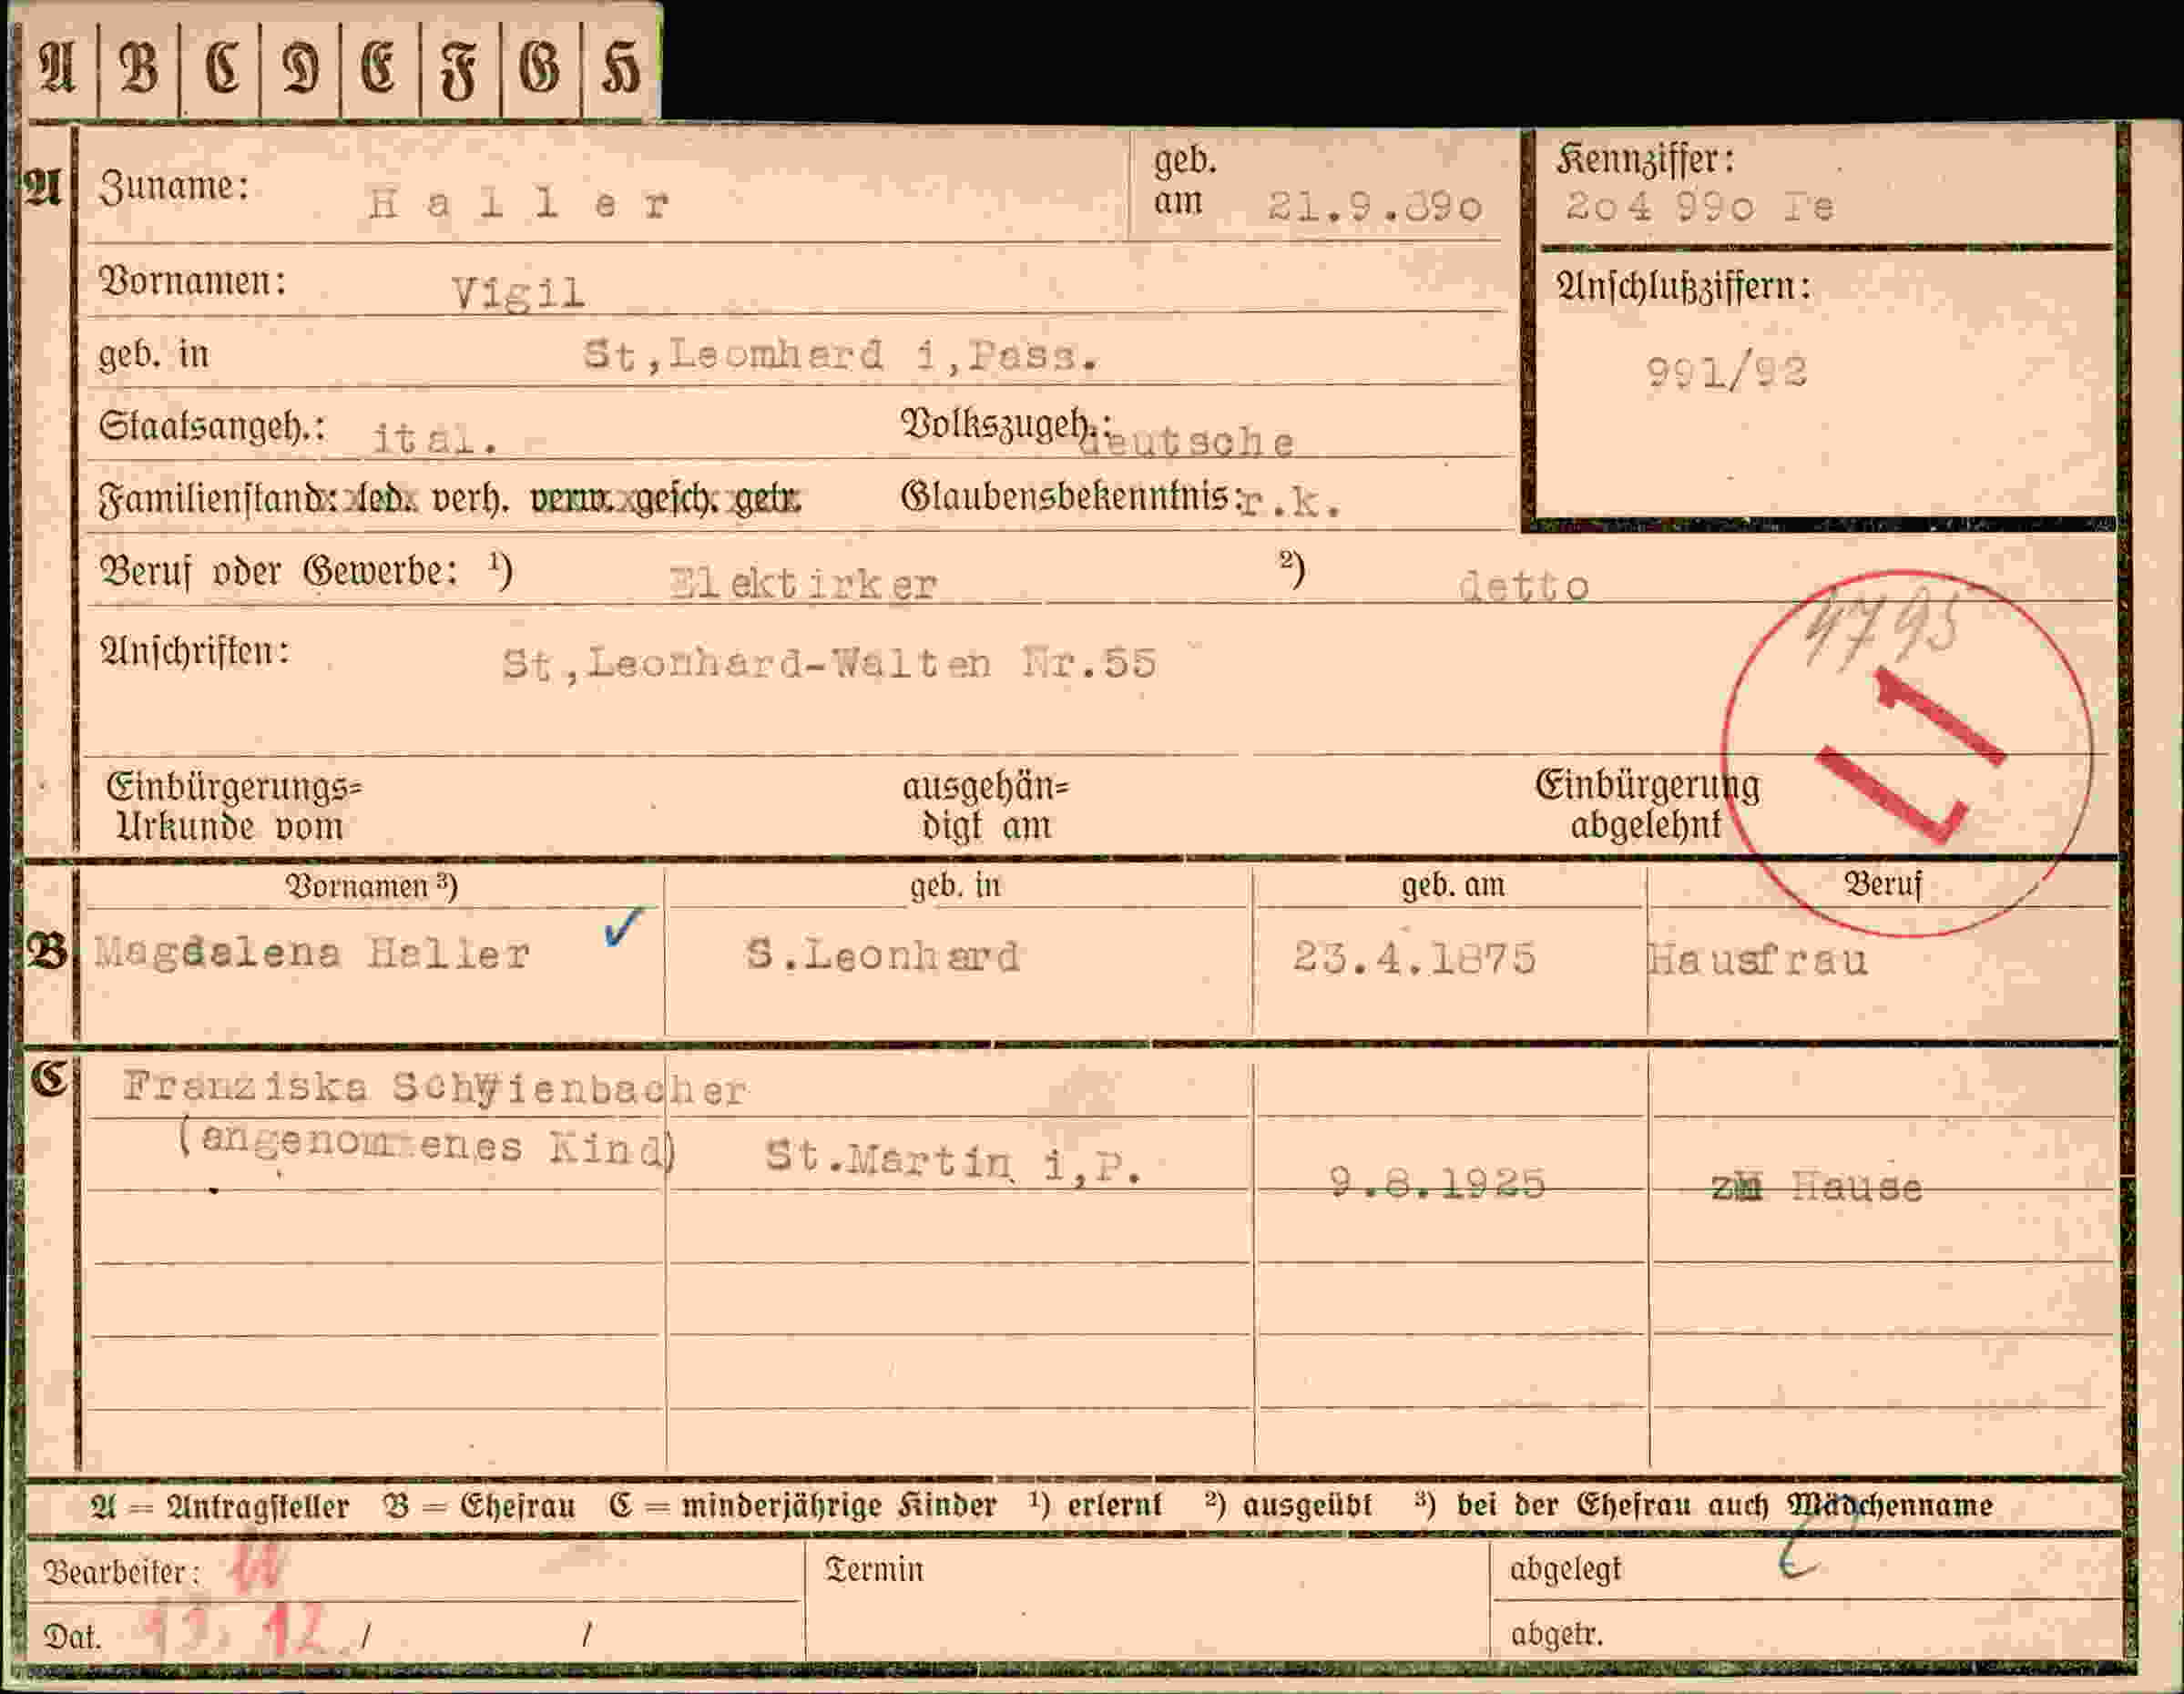 A B C D E F G H
A Zuname: Haller geb. am 21.9.89o
Kennziffer: 2o4 99o Te
Vornamen: Vigil
Anschlußziffern:
geb. in St,Leomhard i,Pass.
991/92
Staatsangeh.: ital. Volkszugeh.: deutsche
Familienstand: led. verh. verw. gesch. getr. Glaubensbekenntnis: r.k.
Beruf oder Gewerbe: ¹) Elektirker ²) detto
4795
Anschriften: St,Leonhard-Walten Nr.55
L 1
Einbürgerungs= ausgehän= Einbürgerung
Urkunde vom digt am abgelehnt
Vornamen ³) geb. in geb. am Beruf
B Magdalena Haller ✓ S.Leonhard 23.4.1875 Hausfrau
C Franziska Schwienbacher
(angenommenes Kind) St.Martin i,P. 9.8.1925 zu Hause
A = Antragsteller B = Ehefrau C = minderjährige Kinder ¹) erlernt ²) ausgeübt ³) bei der Ehefrau auch Mädchenname
Bearbeiter: Termin abgelegt
Dat. 13. 12. / / abgetr.